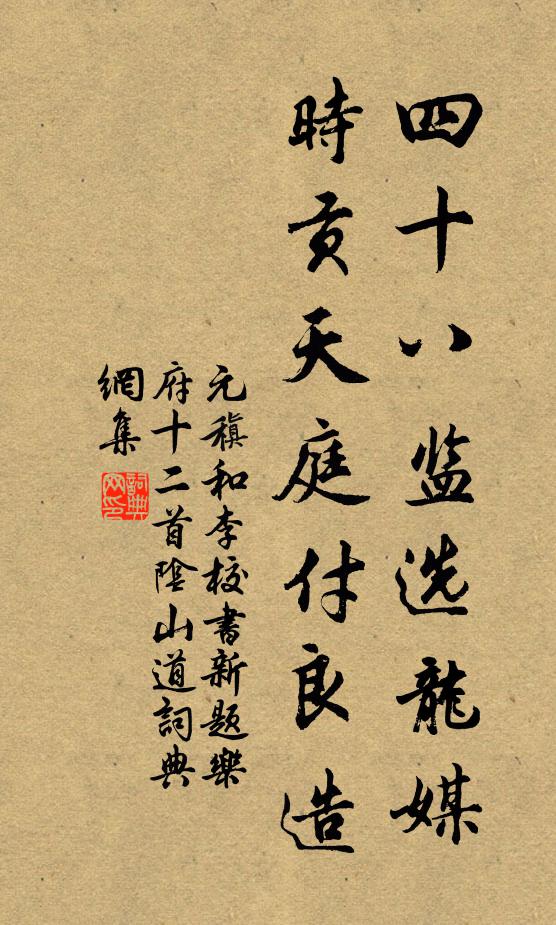 四十八监选龍媒
時贡天庭付良造
元稹和李校書新题樂
府十二首陰山道詞典
網集
詞典网印